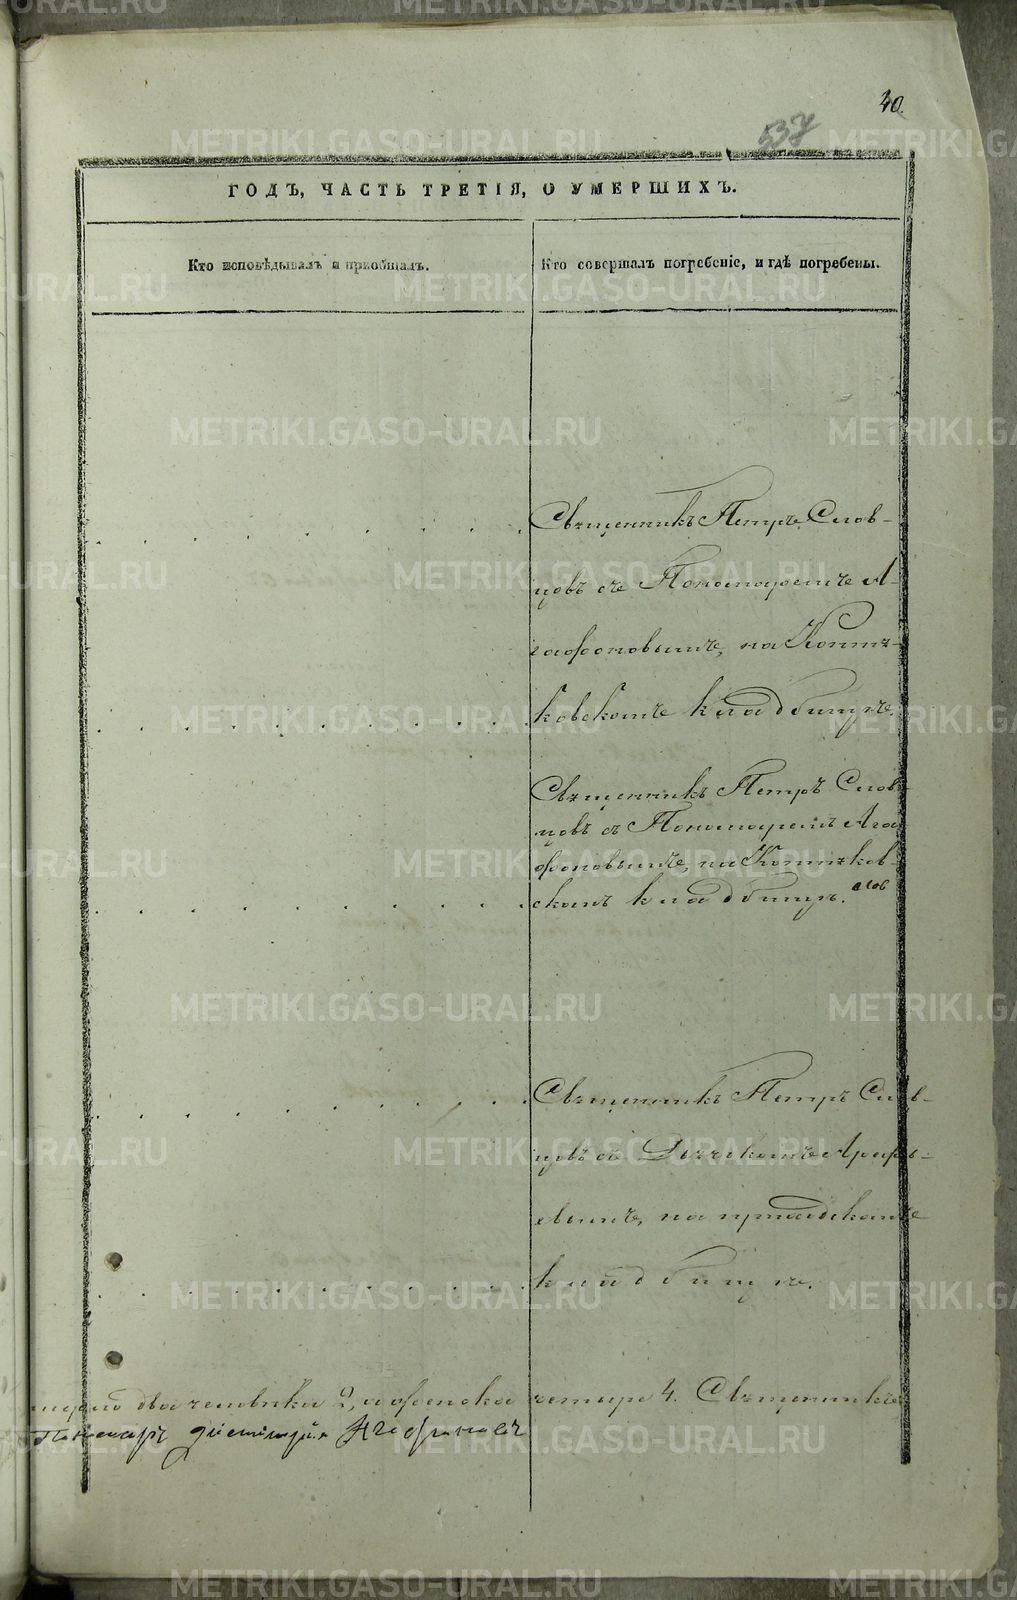 40.
537
ГОДЪ, ЧАСТЬ ТРЕТІЯ, О УМЕРШИХЪ.
Кто исповѣдывалъ и пріобщалъ.
Кто совершалъ погребеніе, и гдѣ погребены.
Священникъ Петръ Слов-
цовъ съ Пономаремъ А-
гафоновымъ, на Коптя-
ковскомъ кладбищѣ.
Священникъ Петръ Слов-
цовъ съ Пономаремъ Ага
фоновымъ, на Коптяков-
скомъ кладбищѣ.
Священникъ Петръ Слов-
цовъ съ Дьячкомъ
на приходскомъ
кладбищѣ.
два человѣка 2, а женска четыре 4. Священникъ
Пономарь Дмитрій Агафоновъ
METRIKI.GASO-URAL.RU